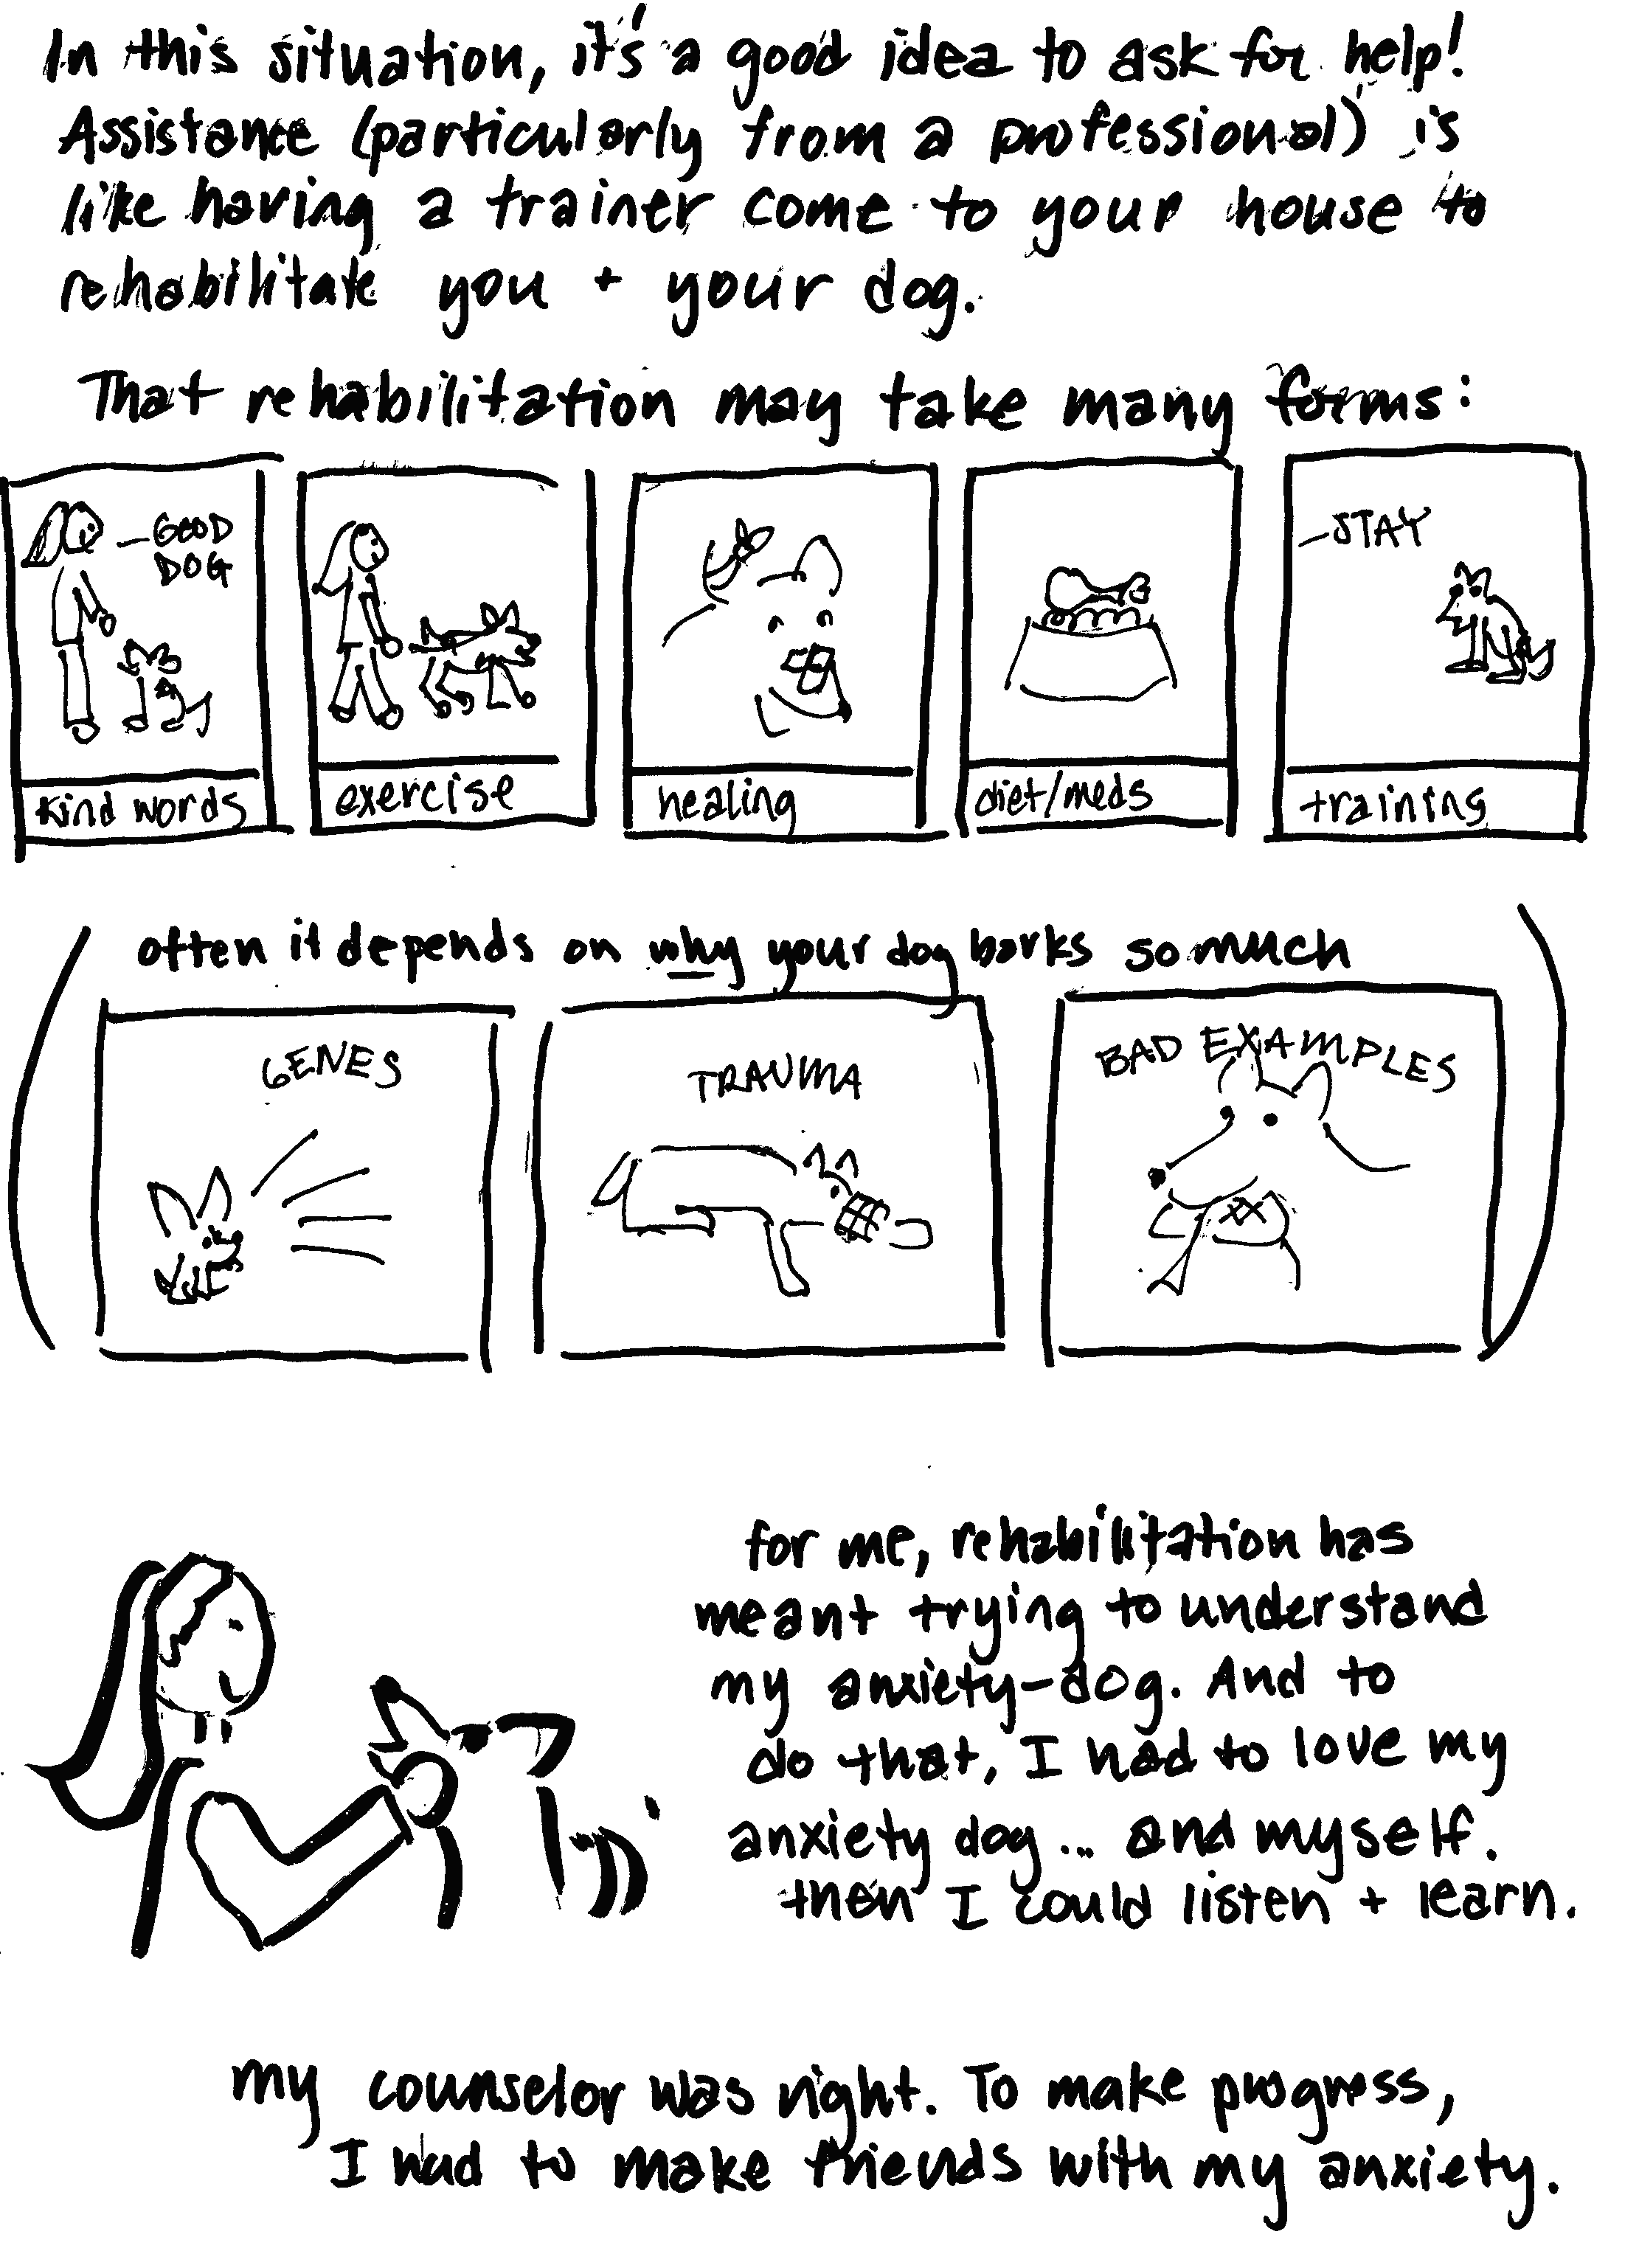 In this situation, it's a good idea to ask for help!
Assistance (particularly from a professional) is
like having a trainer come to your house to
rehabilitate you + your dog.
That rehabilitation may take many forms:
GOOD
DOG
kind words
exercise
healing
diet/meds
STAY
training
often it depends on why your dog barks so much
GENES
TRAUMA
BAD EXAMPLES
for me, rehabilitation has
meant trying to understand
my anxiety-dog. And to
do that, I had to love my
anxiety dog... and myself.
then I could listen + learn.
my counselor was right. To make progress,
I had to make friends with my anxiety.